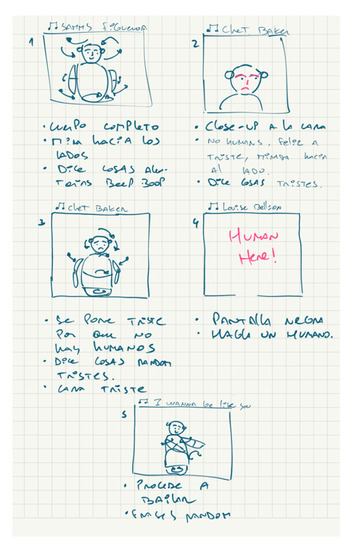 1
♫ Sammy Figueroa
• Cuerpo completo
• Mira hacia los
lados
• Dice cosas
Beep Boop
2
♫ Chet Baker
• Close-up a la cara
• No humans. Feliz a
triste, mirada hacia
al lado.
• Dice cosas tristes.
3
♫ Chet Baker
• Se pone triste
por que no
hay humanos
• Dice cosas random
tristes.
• Cara triste
4
♫ Louise Bellson
Human
Here!
• Pantalla negra
• Habla un humano.
5
♫ I wanna be like you
• Procede a
bailar
• Frases random